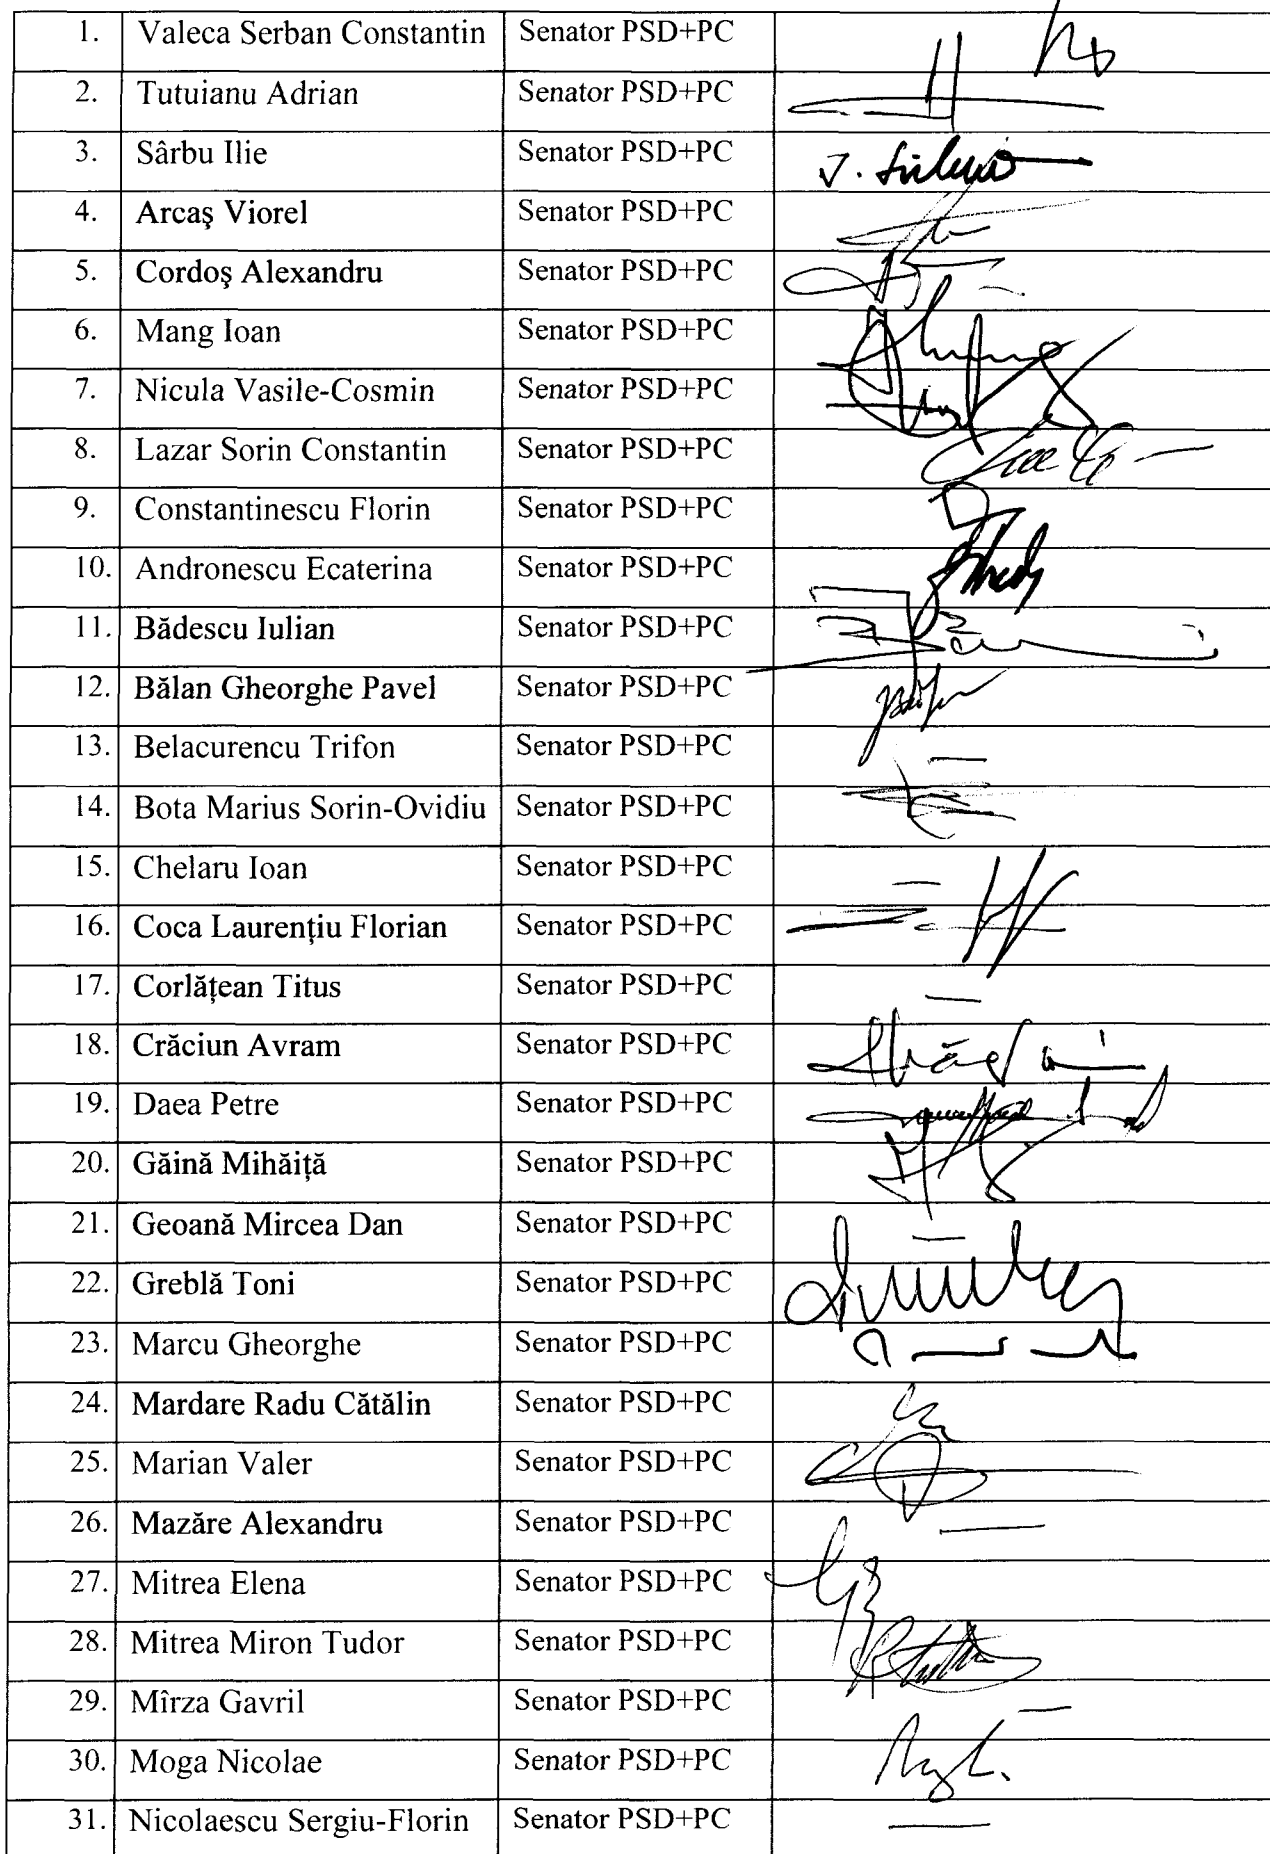 1. Valeca Serban Constantin Senator PSD+PC
2. Tutuianu Adrian Senator PSD+PC
3. Sârbu Ilie Senator PSD+PC
4. Arcaş Viorel Senator PSD+PC
5. Cordoş Alexandru Senator PSD+PC
6. Mang Ioan Senator PSD+PC
7. Nicula Vasile-Cosmin Senator PSD+PC
8. Lazar Sorin Constantin Senator PSD+PC
9. Constantinescu Florin Senator PSD+PC
10. Andronescu Ecaterina Senator PSD+PC
11. Bădescu Iulian Senator PSD+PC
12. Bălan Gheorghe Pavel Senator PSD+PC
13. Belacurencu Trifon Senator PSD+PC
14. Bota Marius Sorin-Ovidiu Senator PSD+PC
15. Chelaru Ioan Senator PSD+PC
16. Coca Laurenţiu Florian Senator PSD+PC
17. Corlăţean Titus Senator PSD+PC
18. Crăciun Avram Senator PSD+PC
19. Daea Petre Senator PSD+PC
20. Găină Mihăiţă Senator PSD+PC
21. Geoană Mircea Dan Senator PSD+PC
22. Greblă Toni Senator PSD+PC
23. Marcu Gheorghe Senator PSD+PC
24. Mardare Radu Cătălin Senator PSD+PC
25. Marian Valer Senator PSD+PC
26. Mazăre Alexandru Senator PSD+PC
27. Mitrea Elena Senator PSD+PC
28. Mitrea Miron Tudor Senator PSD+PC
29. Mîrza Gavril Senator PSD+PC
30. Moga Nicolae Senator PSD+PC
31. Nicolaescu Sergiu-Florin Senator PSD+PC